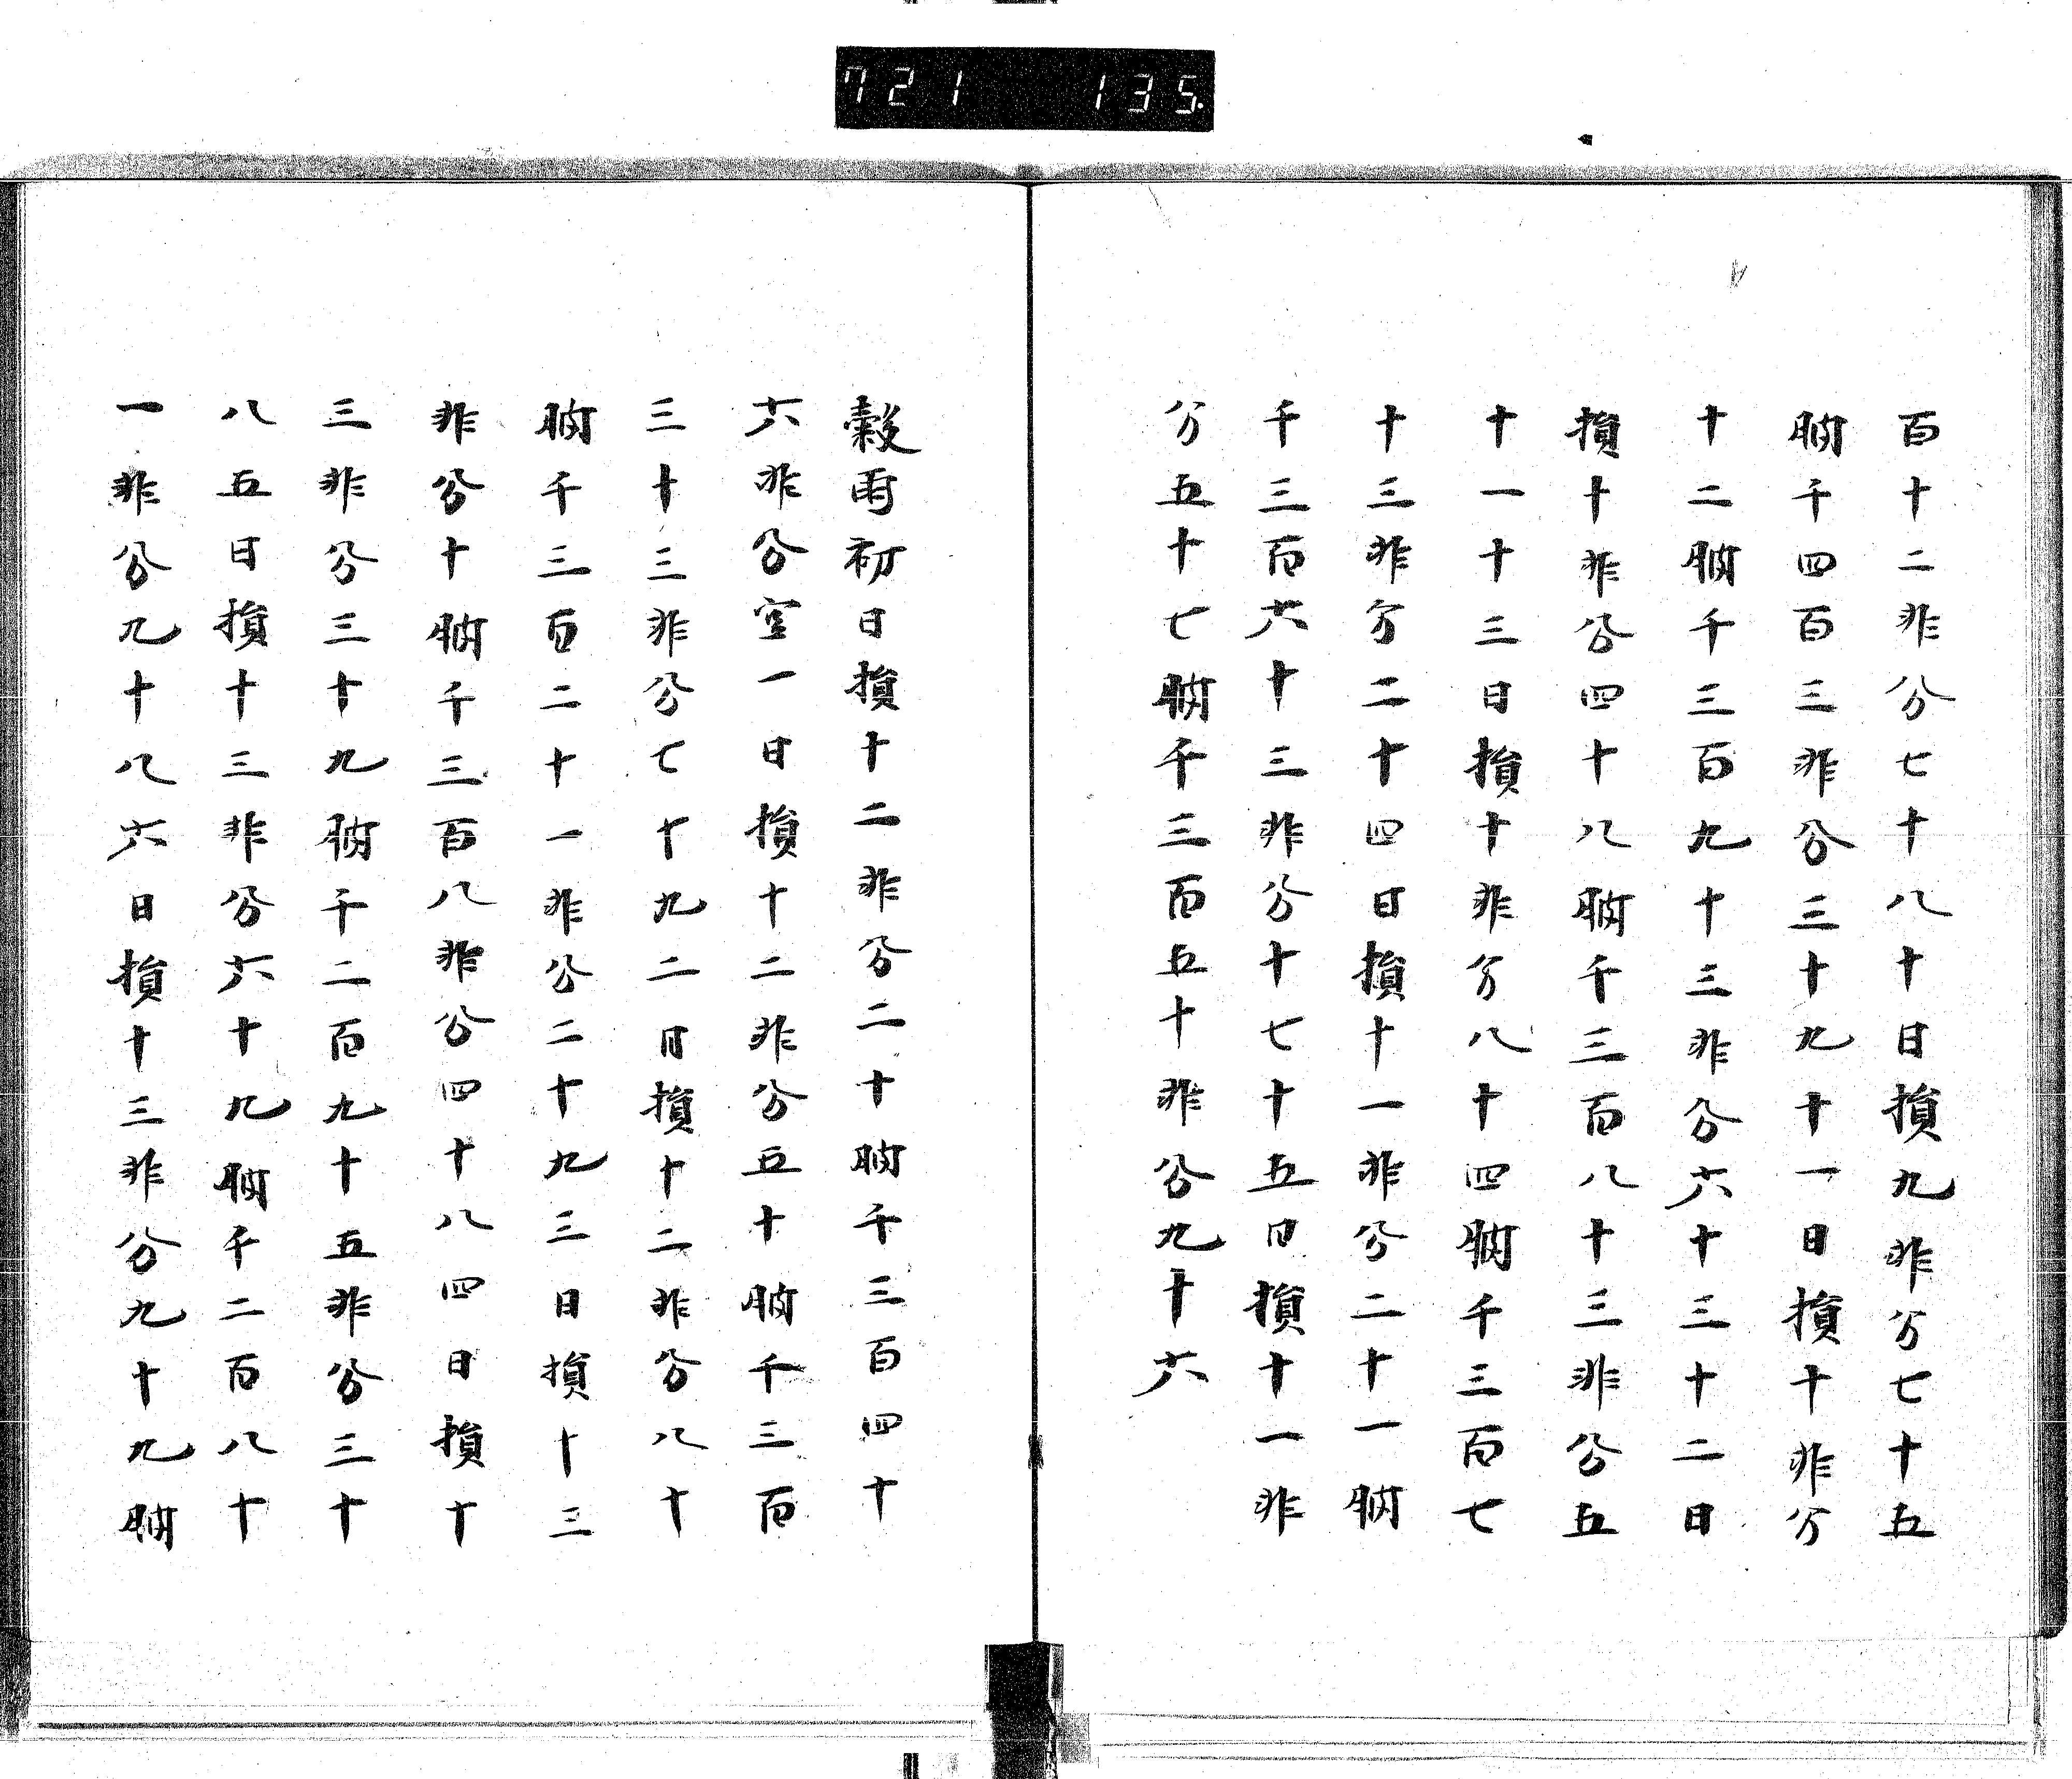 721 135.
百十二非分七十八十日損九非分七十五
朒千四百三非分三十九十一日損十非分
十二朒千三百九十三非分六十三十二日
損十非分四十八朒千三百八十三非分五
十一十三日損十非分八十四朒千三百七
十三非分二十四日損十一非分二十一朒
千三百六十三非分十七十五日損十一非
分五十七朒千三百五十非分九十六
穀雨初日損十二非分二十朒千三百四十
六非分空一日損十二非分五十朒千三百
三十三非分七十九二日損十二非分八十
朒千三百二十一非分二十九三日損十三
非分十朒千三百八非分四十八四日損十
三非分三十九朒千二百九十五非分三十
八五日損十三非分六十九朒千二百八十
一非分九十八六日損十三非分九十九朒